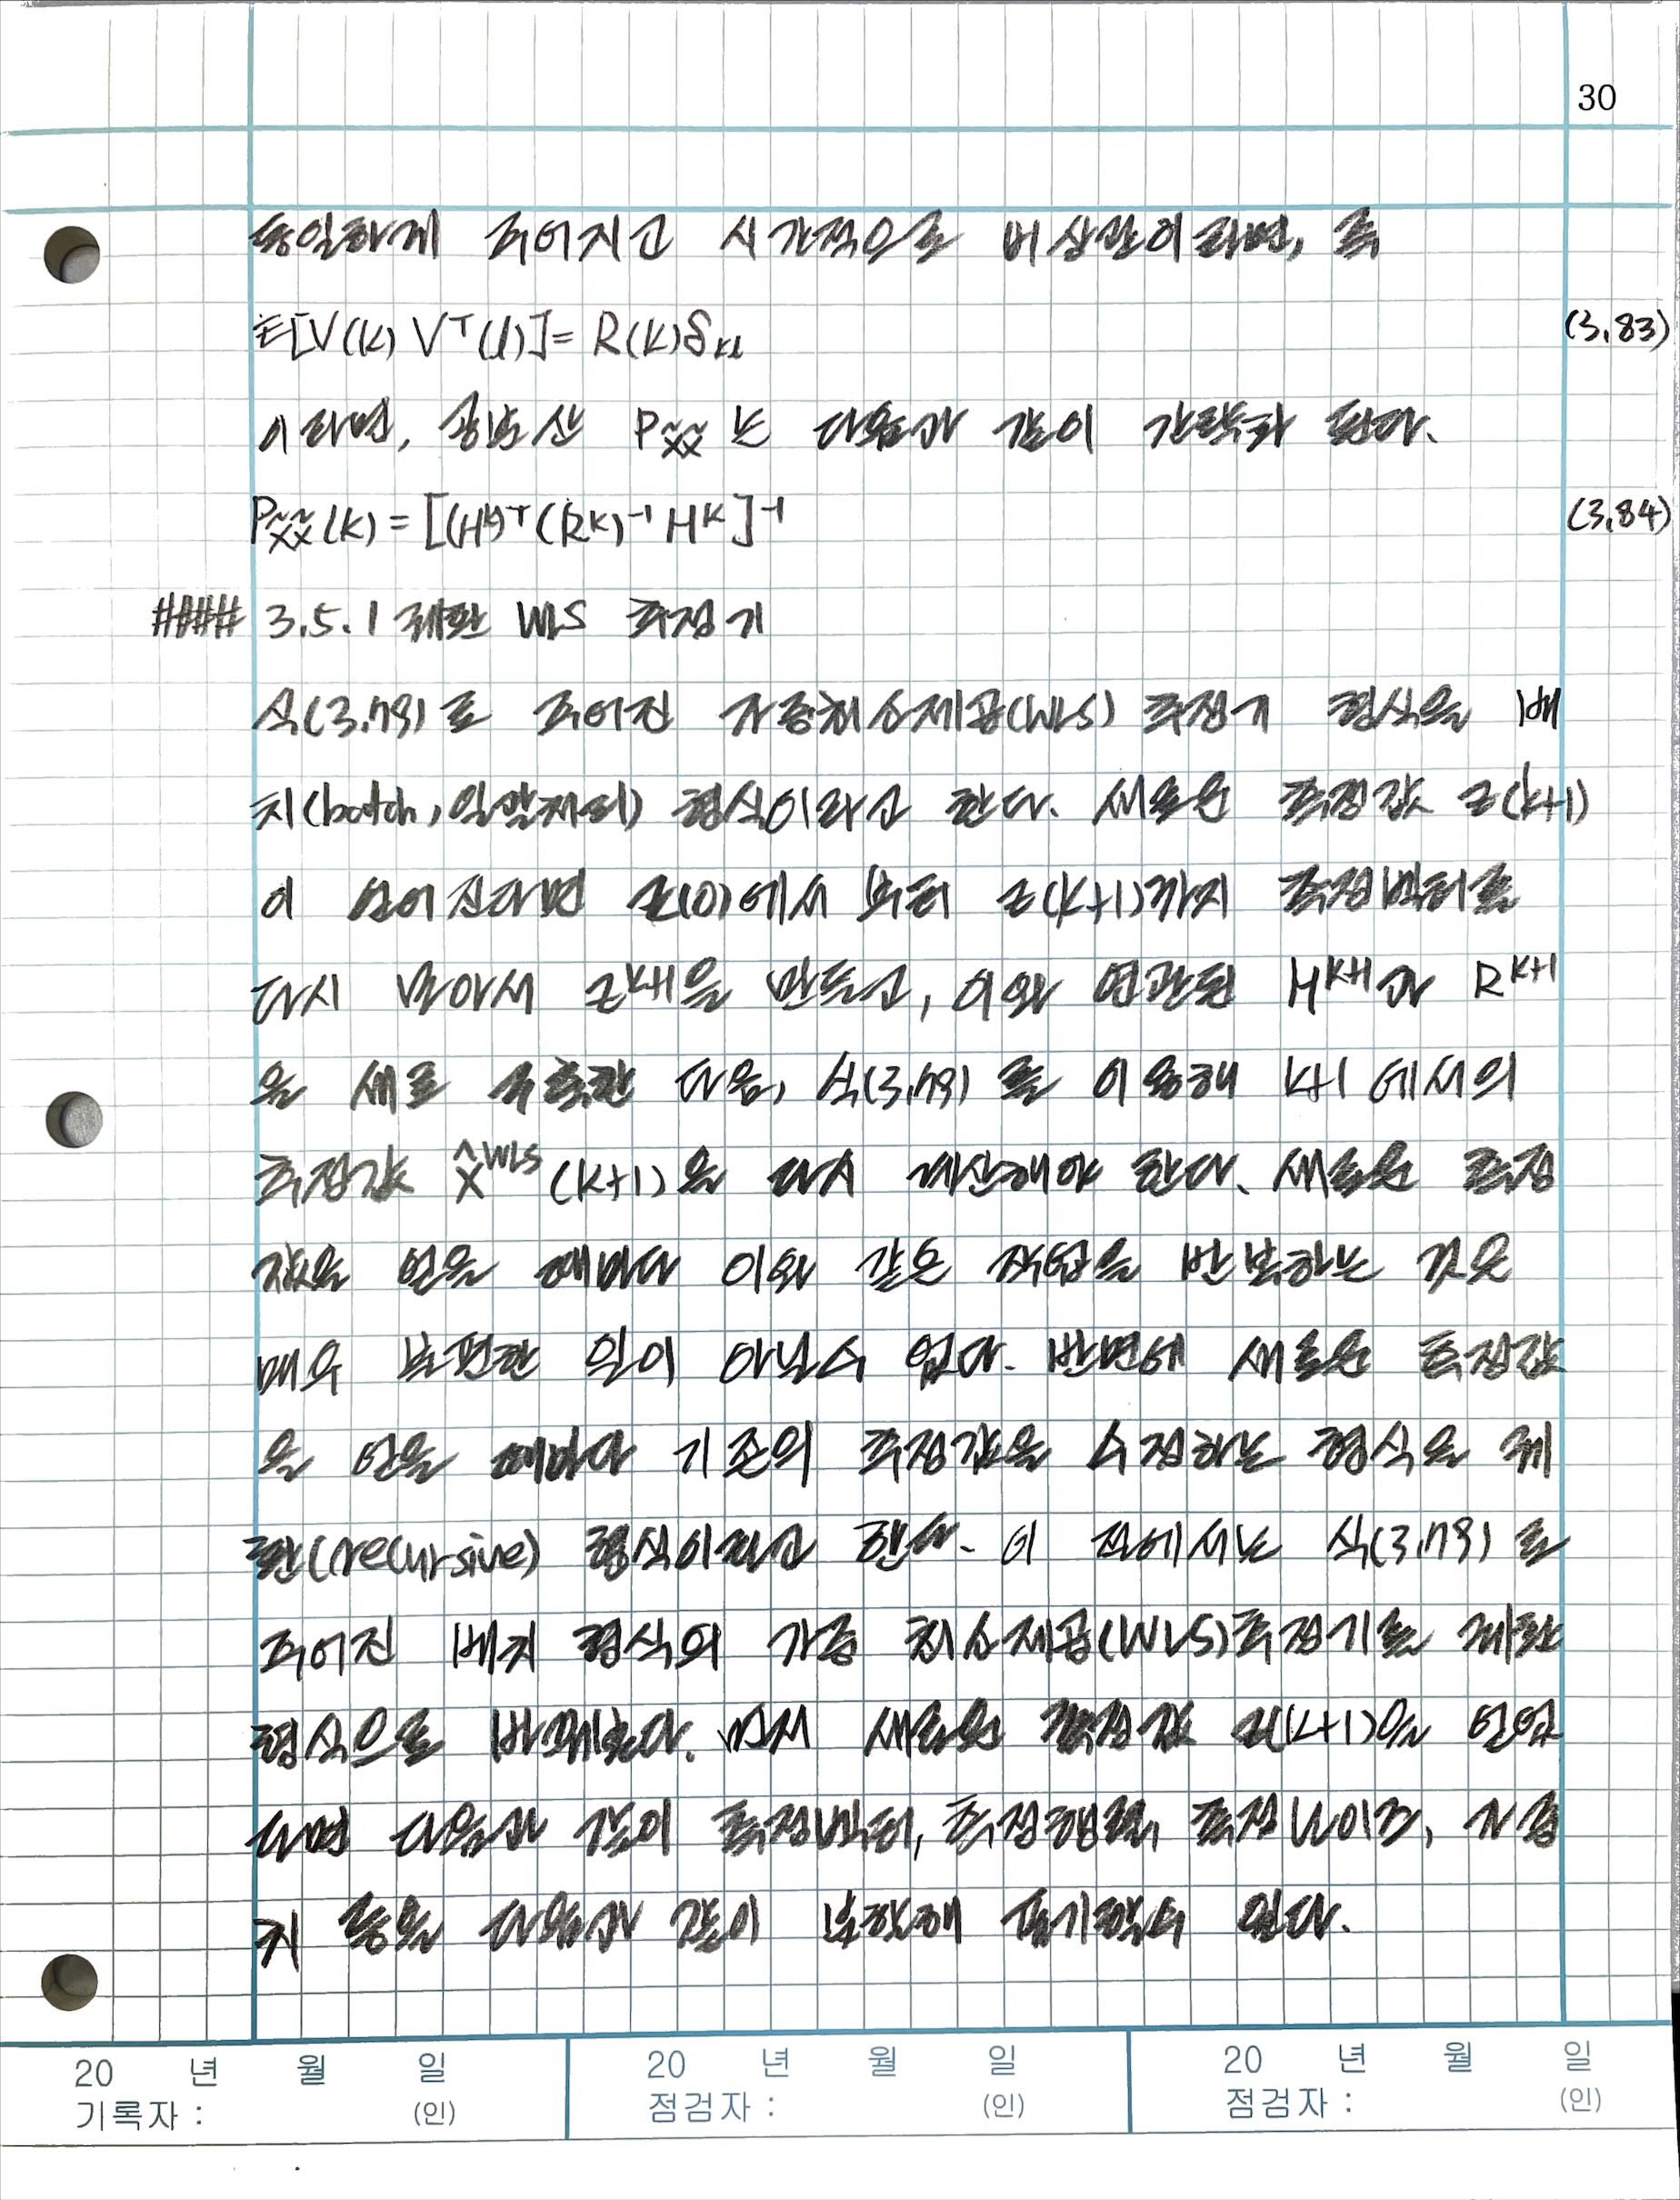 30
동일하게 주어지고 시간적으로 비상관이라면, 즉
E[V(k) Vᵀ(l)] = R(k)δₖₗ (3.83)
이라면, 공분산 P_x̃x̃ 는 다음과 같이 간략화 된다.
P_x̃x̃(k) = [(Hᵏ)ᵀ(Rᵏ)⁻¹Hᵏ]⁻¹ (3.84)
#### 3.5.1 재환 WLS 추정기
식(3.79)로 주어진 가중최소제곱(WLS) 추정기 형식을 배
치(batch, 일괄처리) 형식이라고 한다. 새로운 측정값 z(k+1)
이 얻어진다면 z(0)에서 부터 z(k+1)까지 측정벡터를
다시 모아서 zᵏ⁺¹을 만들고, 이와 연관된 Hᵏ⁺¹과 Rᵏ⁺¹
을 새로 구축한 다음, 식(3.79)를 이용해 k+1에서의
추정값 x̂ᵂᴸˢ(k+1)을 다시 계산해야 한다. 새로운 측정
값을 얻을 때마다 이와 같은 작업을 반복하는 것은
매우 불편한 일이 아닐수 없다. 반면에 새로운 측정값
을 얻을 때마다 기존의 추정값을 수정하는 형식을 재
환(recursive) 형식이라고 한다. 이 절에서는 식(3.79)로
주어진 배치 형식의 가중 최소제곱(WLS)추정기를 재환
형식으로 바꿔본다. 먼저 새로운 측정값 z(k+1)을 얻었
다면 다음과 같이 측정벡터, 측정행렬, 측정 노이즈, 가중
치 등을 다음과 같이 분할해 표기할수 있다.
20 년 월 일 20 년 월 일 20 년 월 일
기록자 : (인) 점검자 : (인) 점검자 : (인)